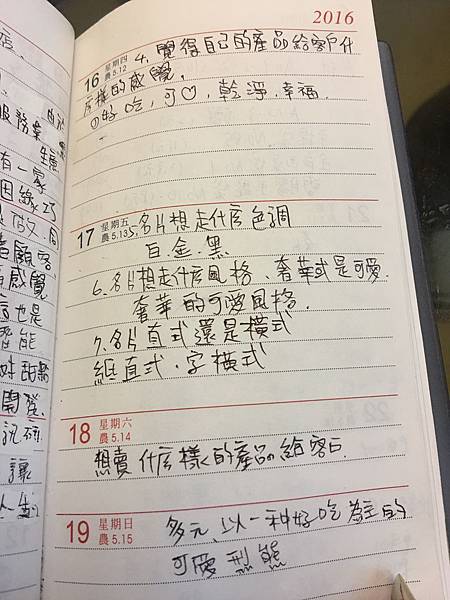 店.
服務業
有一家
因緣巧
做同
顧客
感覺
也是
智能
開發.
讓
2016
16 星期四 農5.12 4. 覺得自己的產品給客戶什
麼樣的感覺.
①好吃,可♡,乾淨.幸福.
17 星期五 農5.13 5.名片想走什麼色調
白.金.黑
6.名片想走什麼風格、奢華或是可愛.
奢華的可愛風格.
7.名片直式還是橫式
紙直式.字橫式
18 星期六 農5.14
想賣什麼樣的產品給客戶.
19 星期日 農5.15 多元、以一種好吃為主的
可愛型態